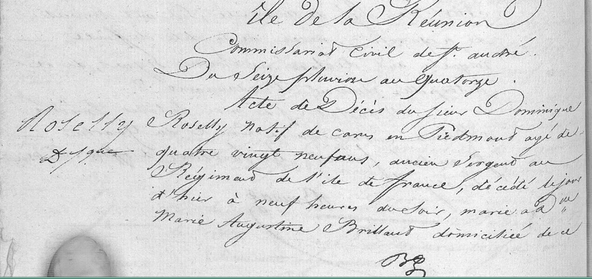 île de la Réunion
Commissariat Civil de St. andré.
Du Seize pluviose an Quatorze.
Acte de Décès du sieur Dominique
Roselly Roselly natif de cony en Piedmond agé de
Dque quatre vingt neuf ans, ancien Sergent au
Régiment de l'ile de france, décédé le jour
d'hier à neuf heures du soir, marié à de
Marie Augustine Brillant domiciliée de ce